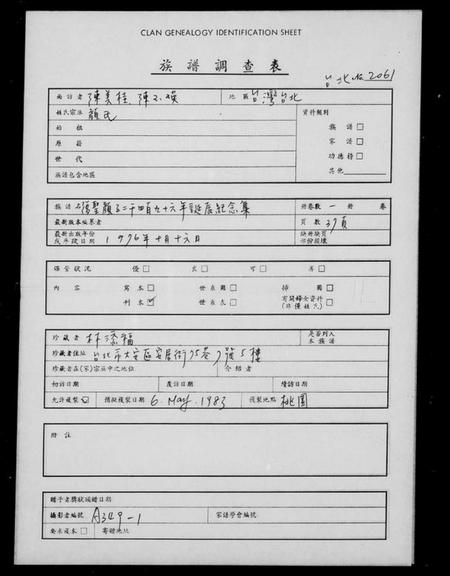 CLAN GENEALOGY IDENTIFICATION SHEET
族譜調查表
台北 No. 2061
面訪者 陳美桂, 陳 地區 台灣台北
姓氏宗派 顏氏 資料類別
始祖 族譜 □
原籍 家譜 □
世代 功德榜 □
族譜包含地區 其他
族譜名 復聖顏子二千四百九十六年誕辰紀念集 冊卷數 一冊 卷
最新版本編纂者 頁數 37頁
最新出版年份或手改日期 1976年十月十六日 缺冊缺頁部份損壞
保管狀況 優 □ 良 □ 可 □ 劣 □
內容 寫本 □ 世系圖 □ 插圖 □
刊本 ☑ 世系表 □ 有關婦女資料 (非僅姓氏) □
珍藏者 林添福 是否列入本族譜
珍藏者住址 台北市大安區安居街75巷7號5樓
珍藏者在(家)宗派中之地位 介紹者
初訪日期 覆訪日期 續訪日期
允許複製 ☑ 攝製複製日期 6. May. 1983 複製地點 桃園
附註
贈予者獎狀頒贈日期
攝影者編號 A349-1 家譜學會編號
要求複本 □ 寄贈地址